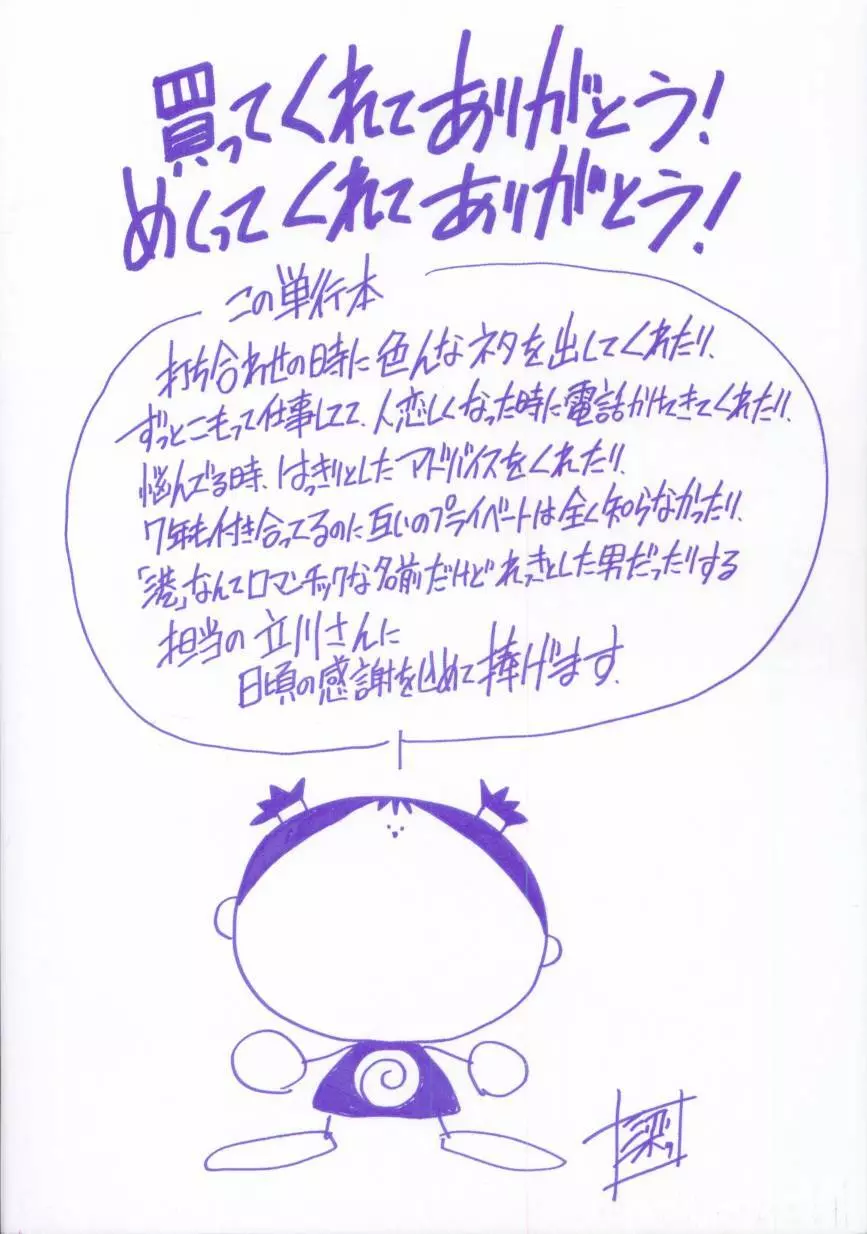 買ってくれてありがとう!
めくってくれてありがとう!
この単行本
打ち合わせの時に色んなネタを出してくれたり、
ずっとこもって仕事してて、人恋しくなった時に電話かけてきてくれたり、
悩んでる時、はっきりとしたアドバイスをくれたり、
7年も付き合ってるのに互いのプライベートは全く知らなかったり、
「港」なんてロマンチックな名前だけどれっきとした男だったりする
担当の立川さんに
日頃の感謝を込めて捧げます。